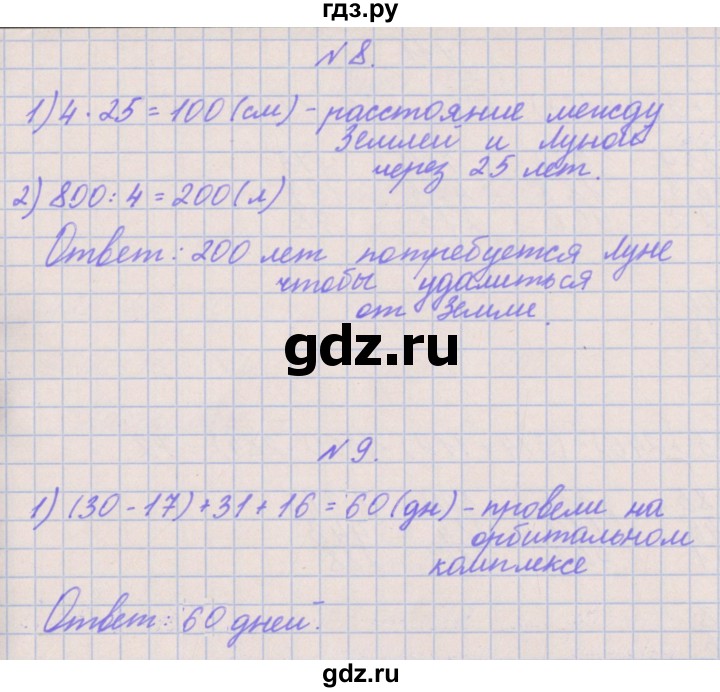 гдз.ру
№ 8.
1) 4 · 25 = 100 (см) - расстояние между
Землей и Луной
через 25 лет.
2) 800 : 4 = 200 (л)
Ответ: 200 лет потребуется Луне
чтобы удалиться
от Земли.
gdz.ru
№ 9.
1) (30 - 17) + 31 + 16 = 60 (дн) - провели на
орбитальном
комплексе
Ответ: 60 дней.
gdz.ru